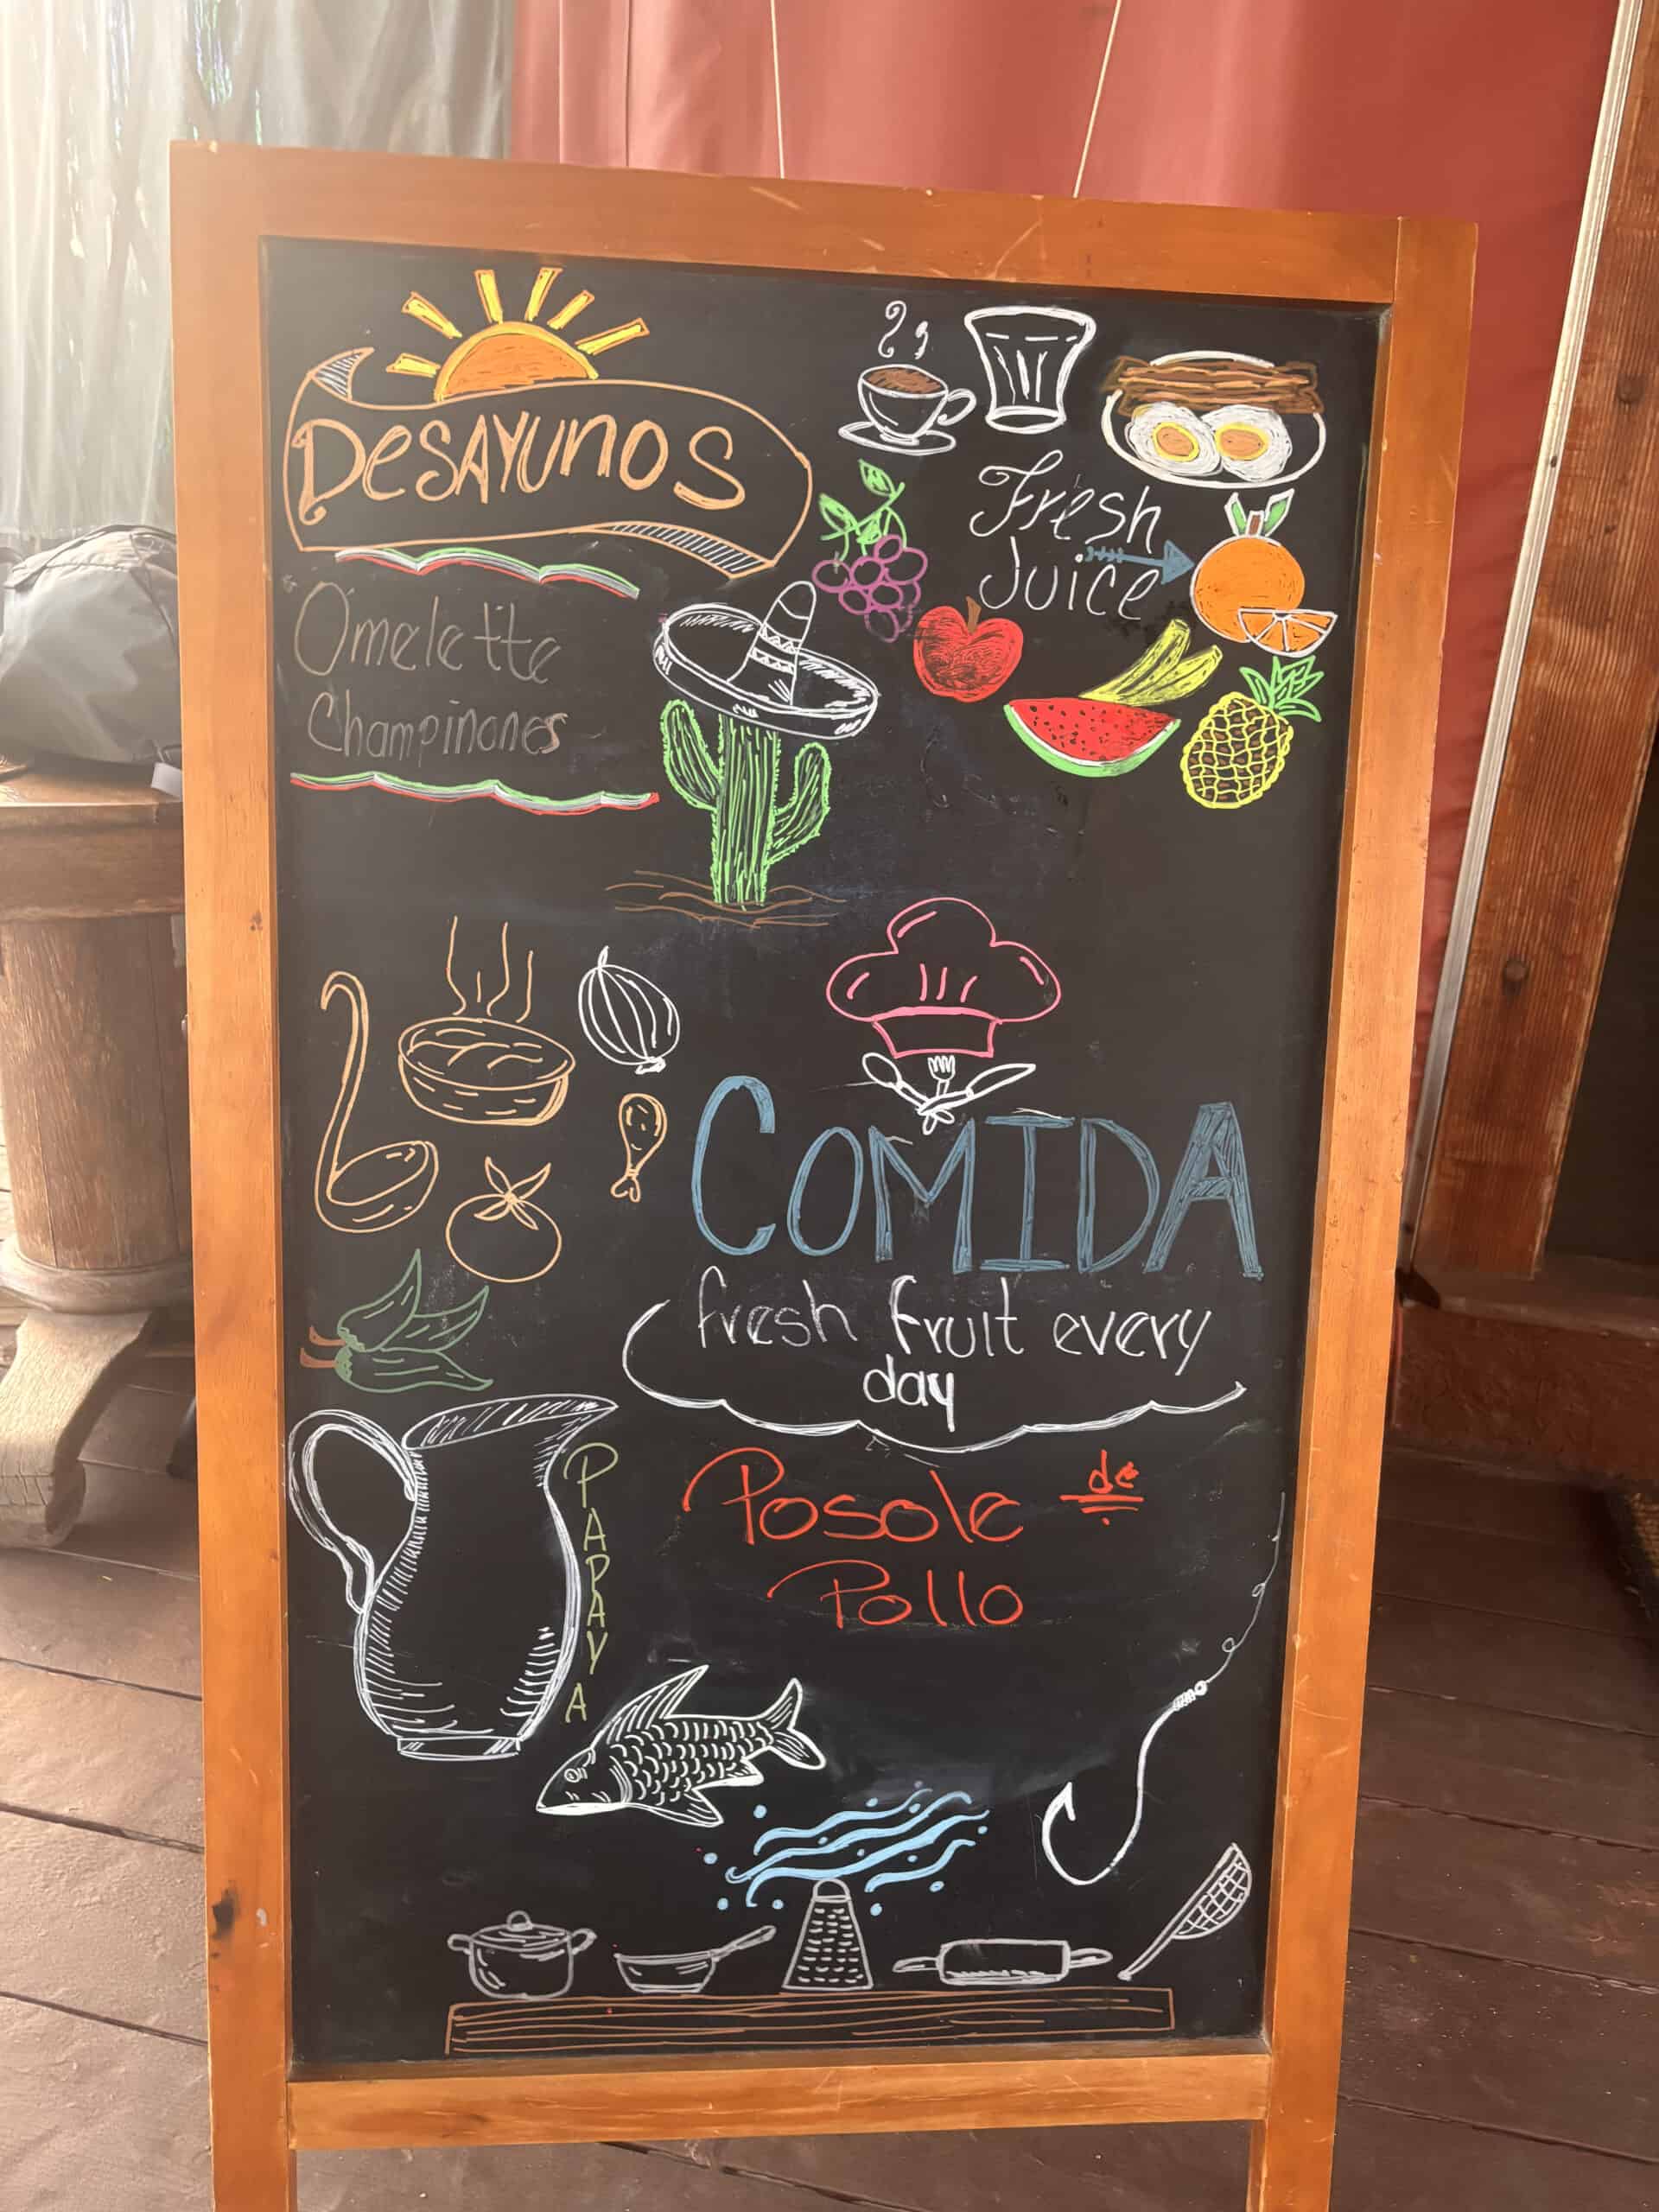 DeSAYUnOS
Omelette
Champinones
Fresh
Juice
COMIDA
fresh fruit every
day
PAPAYA
Posole de
Pollo